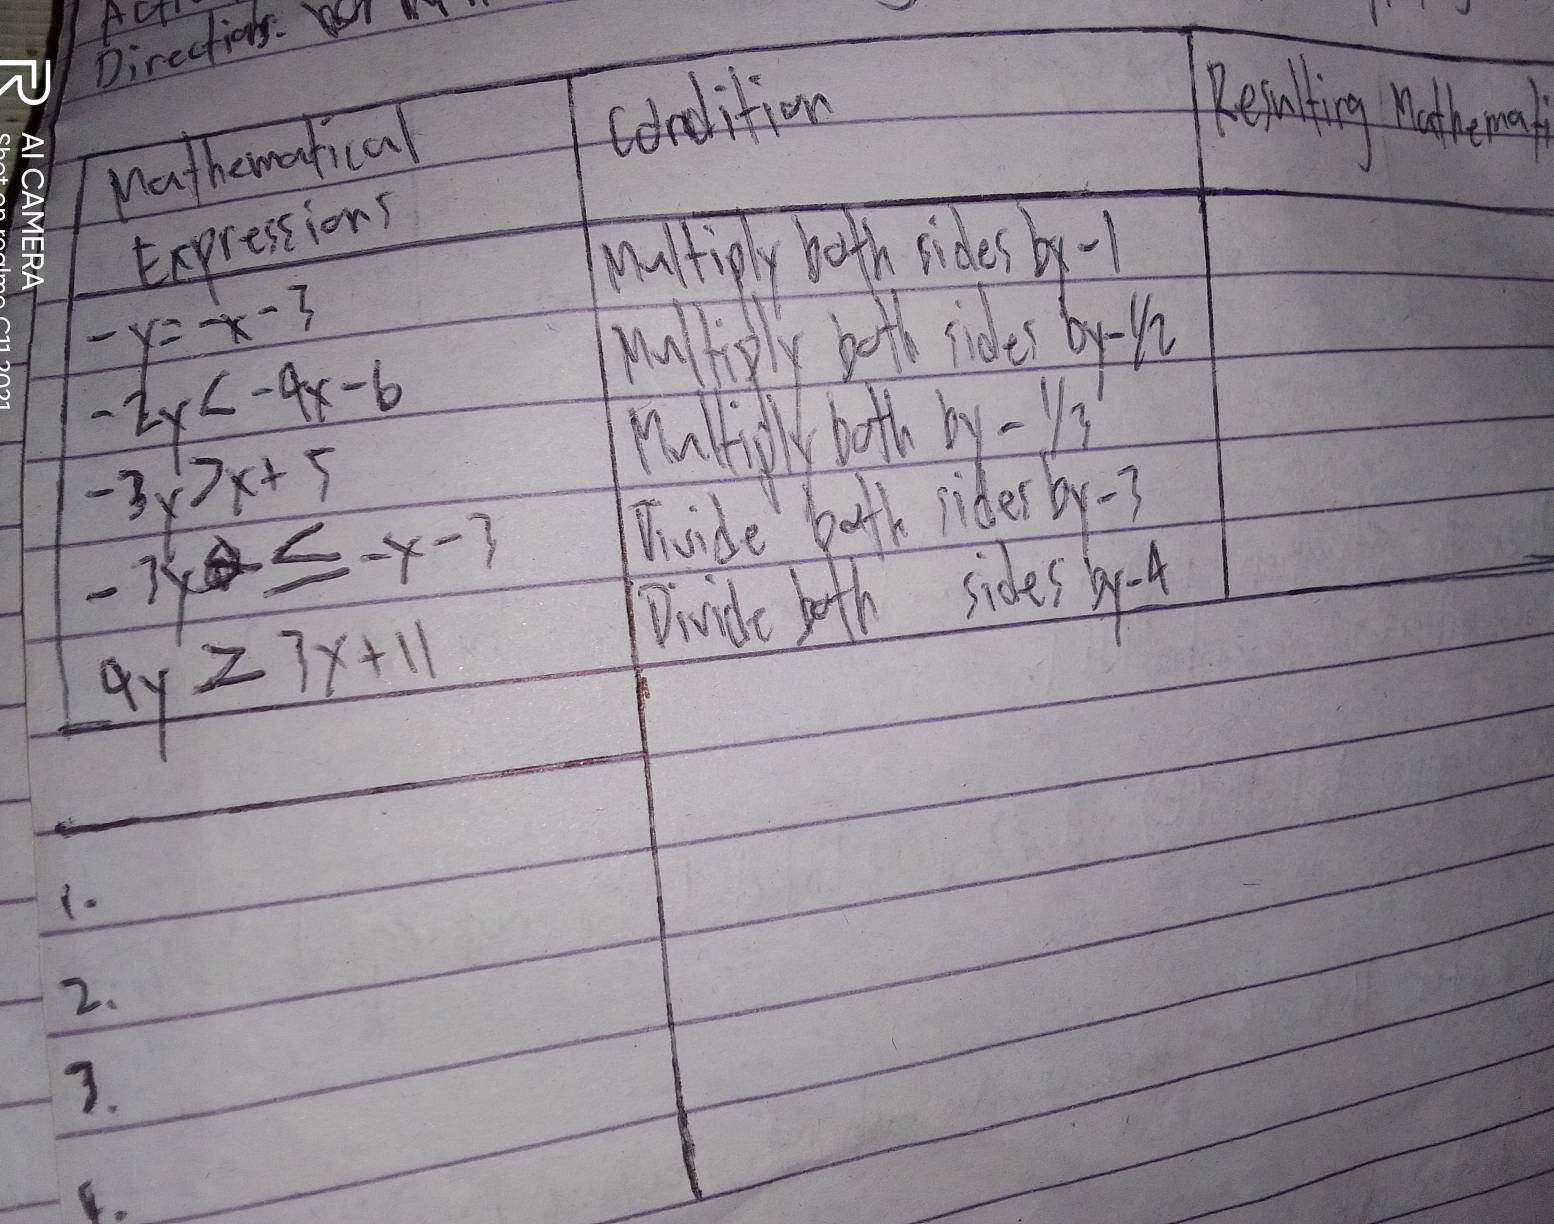 Directions:
Mathematical Expressions
Condition
Resulting Mathemati
-y = -x - 3
Multiply both sides by -1
-2y < -4x - 6
Multiply both sides by -1/2
-3y > x + 5
Multiply both by - 1/3
-3y ≤ -x - 3
Divide both sides by -3
4y ≥ 3x + 11
Divide both sides by -4
1.
2.
3.
4.
AI CAMERA
Shot on realme C11 2021